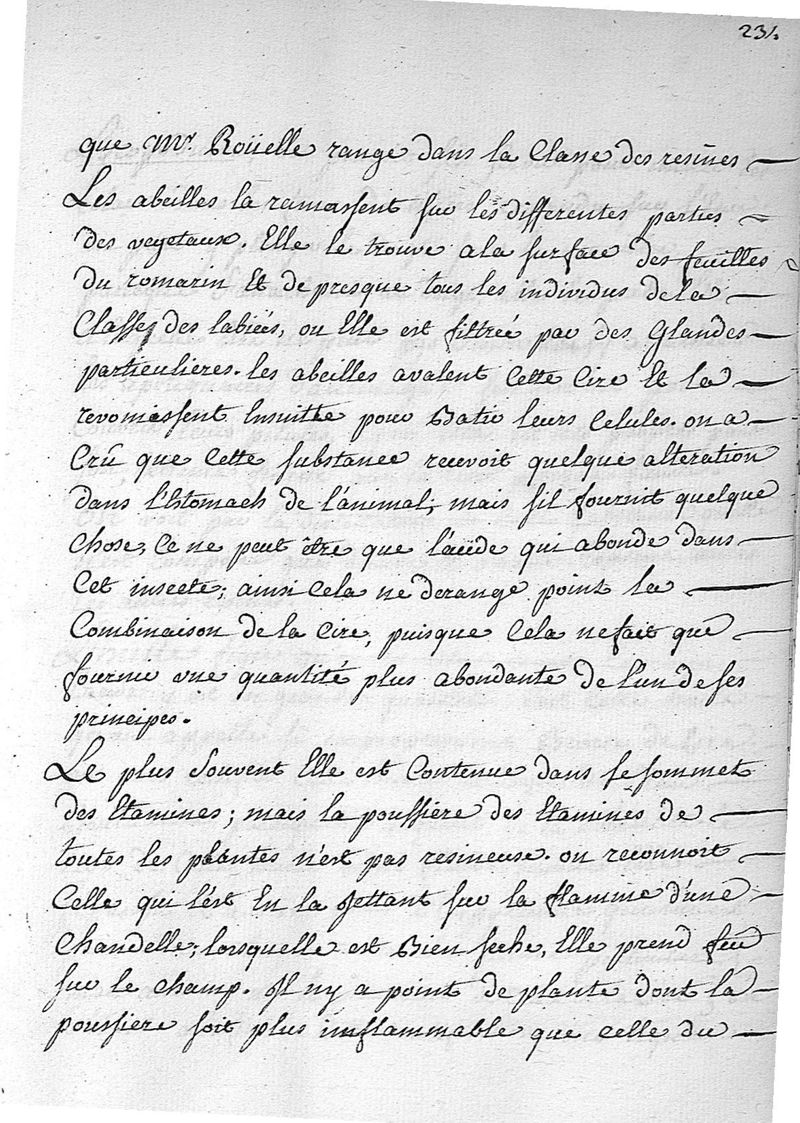 234
que Mr. Roüelle range dans la Classe des resines
Les abeilles la ramassent sur les differentes parties
des vegetaux. Elle se trouve a la surface des feuilles
du romarin Et de presque tous les individus de la
Classe des labiées, ou Elle est filtreé par des Glandes
particulières. les abeilles avalent Cette Cire Et la
revomissent Ensuitte pour Batir leurs Celules. on a
Crû que Cette substance recevoit quelque alteration
dans l'Estomach de l'animal; mais s'il fournit quelque
Chose, Ce ne peut être que l'acide qui abonde dans
Cet insecte; ainsi Cela ne derange point la
Combinaison de la Cire, puisque Cela ne fait que
fournir une quantité plus abondante de l'un de ses
principes.
Le plus Souvent Elle est Contenue dans le sommet
des Etamines; mais la poussière des Etamines de
toutes les plantes n'est pas resineuse. on reconnoit
Celle qui l'est En la Jettant sur la flamme d'une
Chandelle; lorsquelle est Bien seche, Elle prend feu
sur le champ. Il ny a point de plante dont la
poussiere soit plus inflammable que celle du